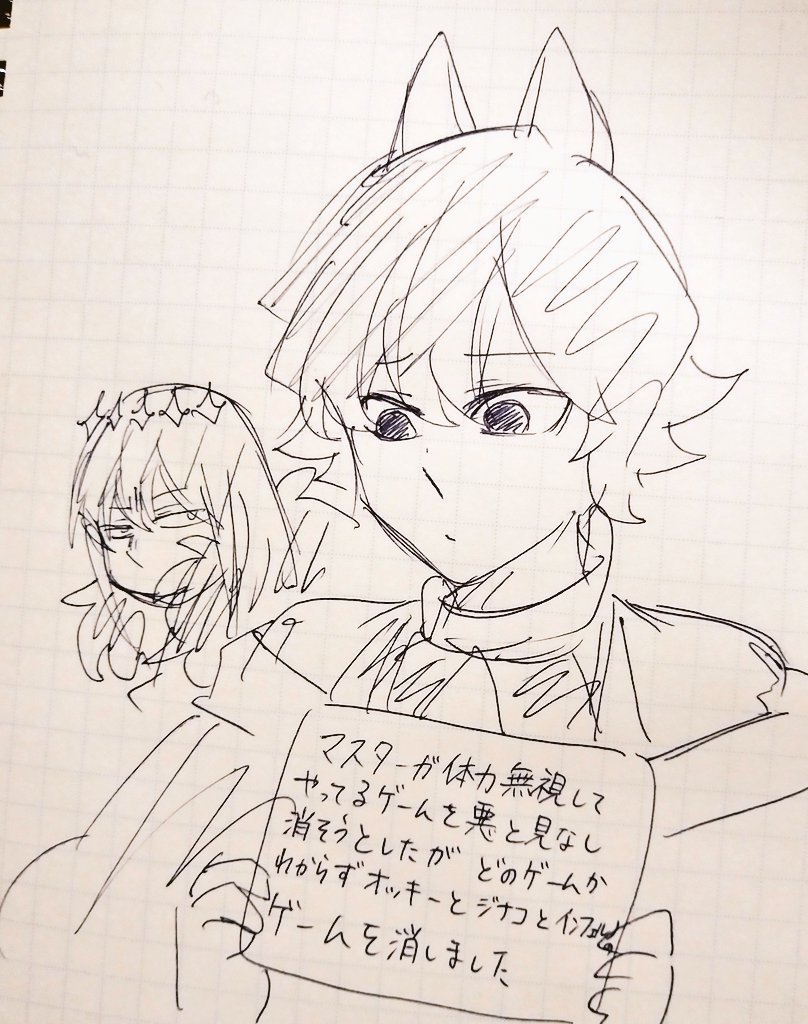 マスターが体力無視して
やってるゲームを悪と見なし
消そうとしたが どのゲームか
わからずオッキーとジナコとインフェルノの
ゲームを消しました